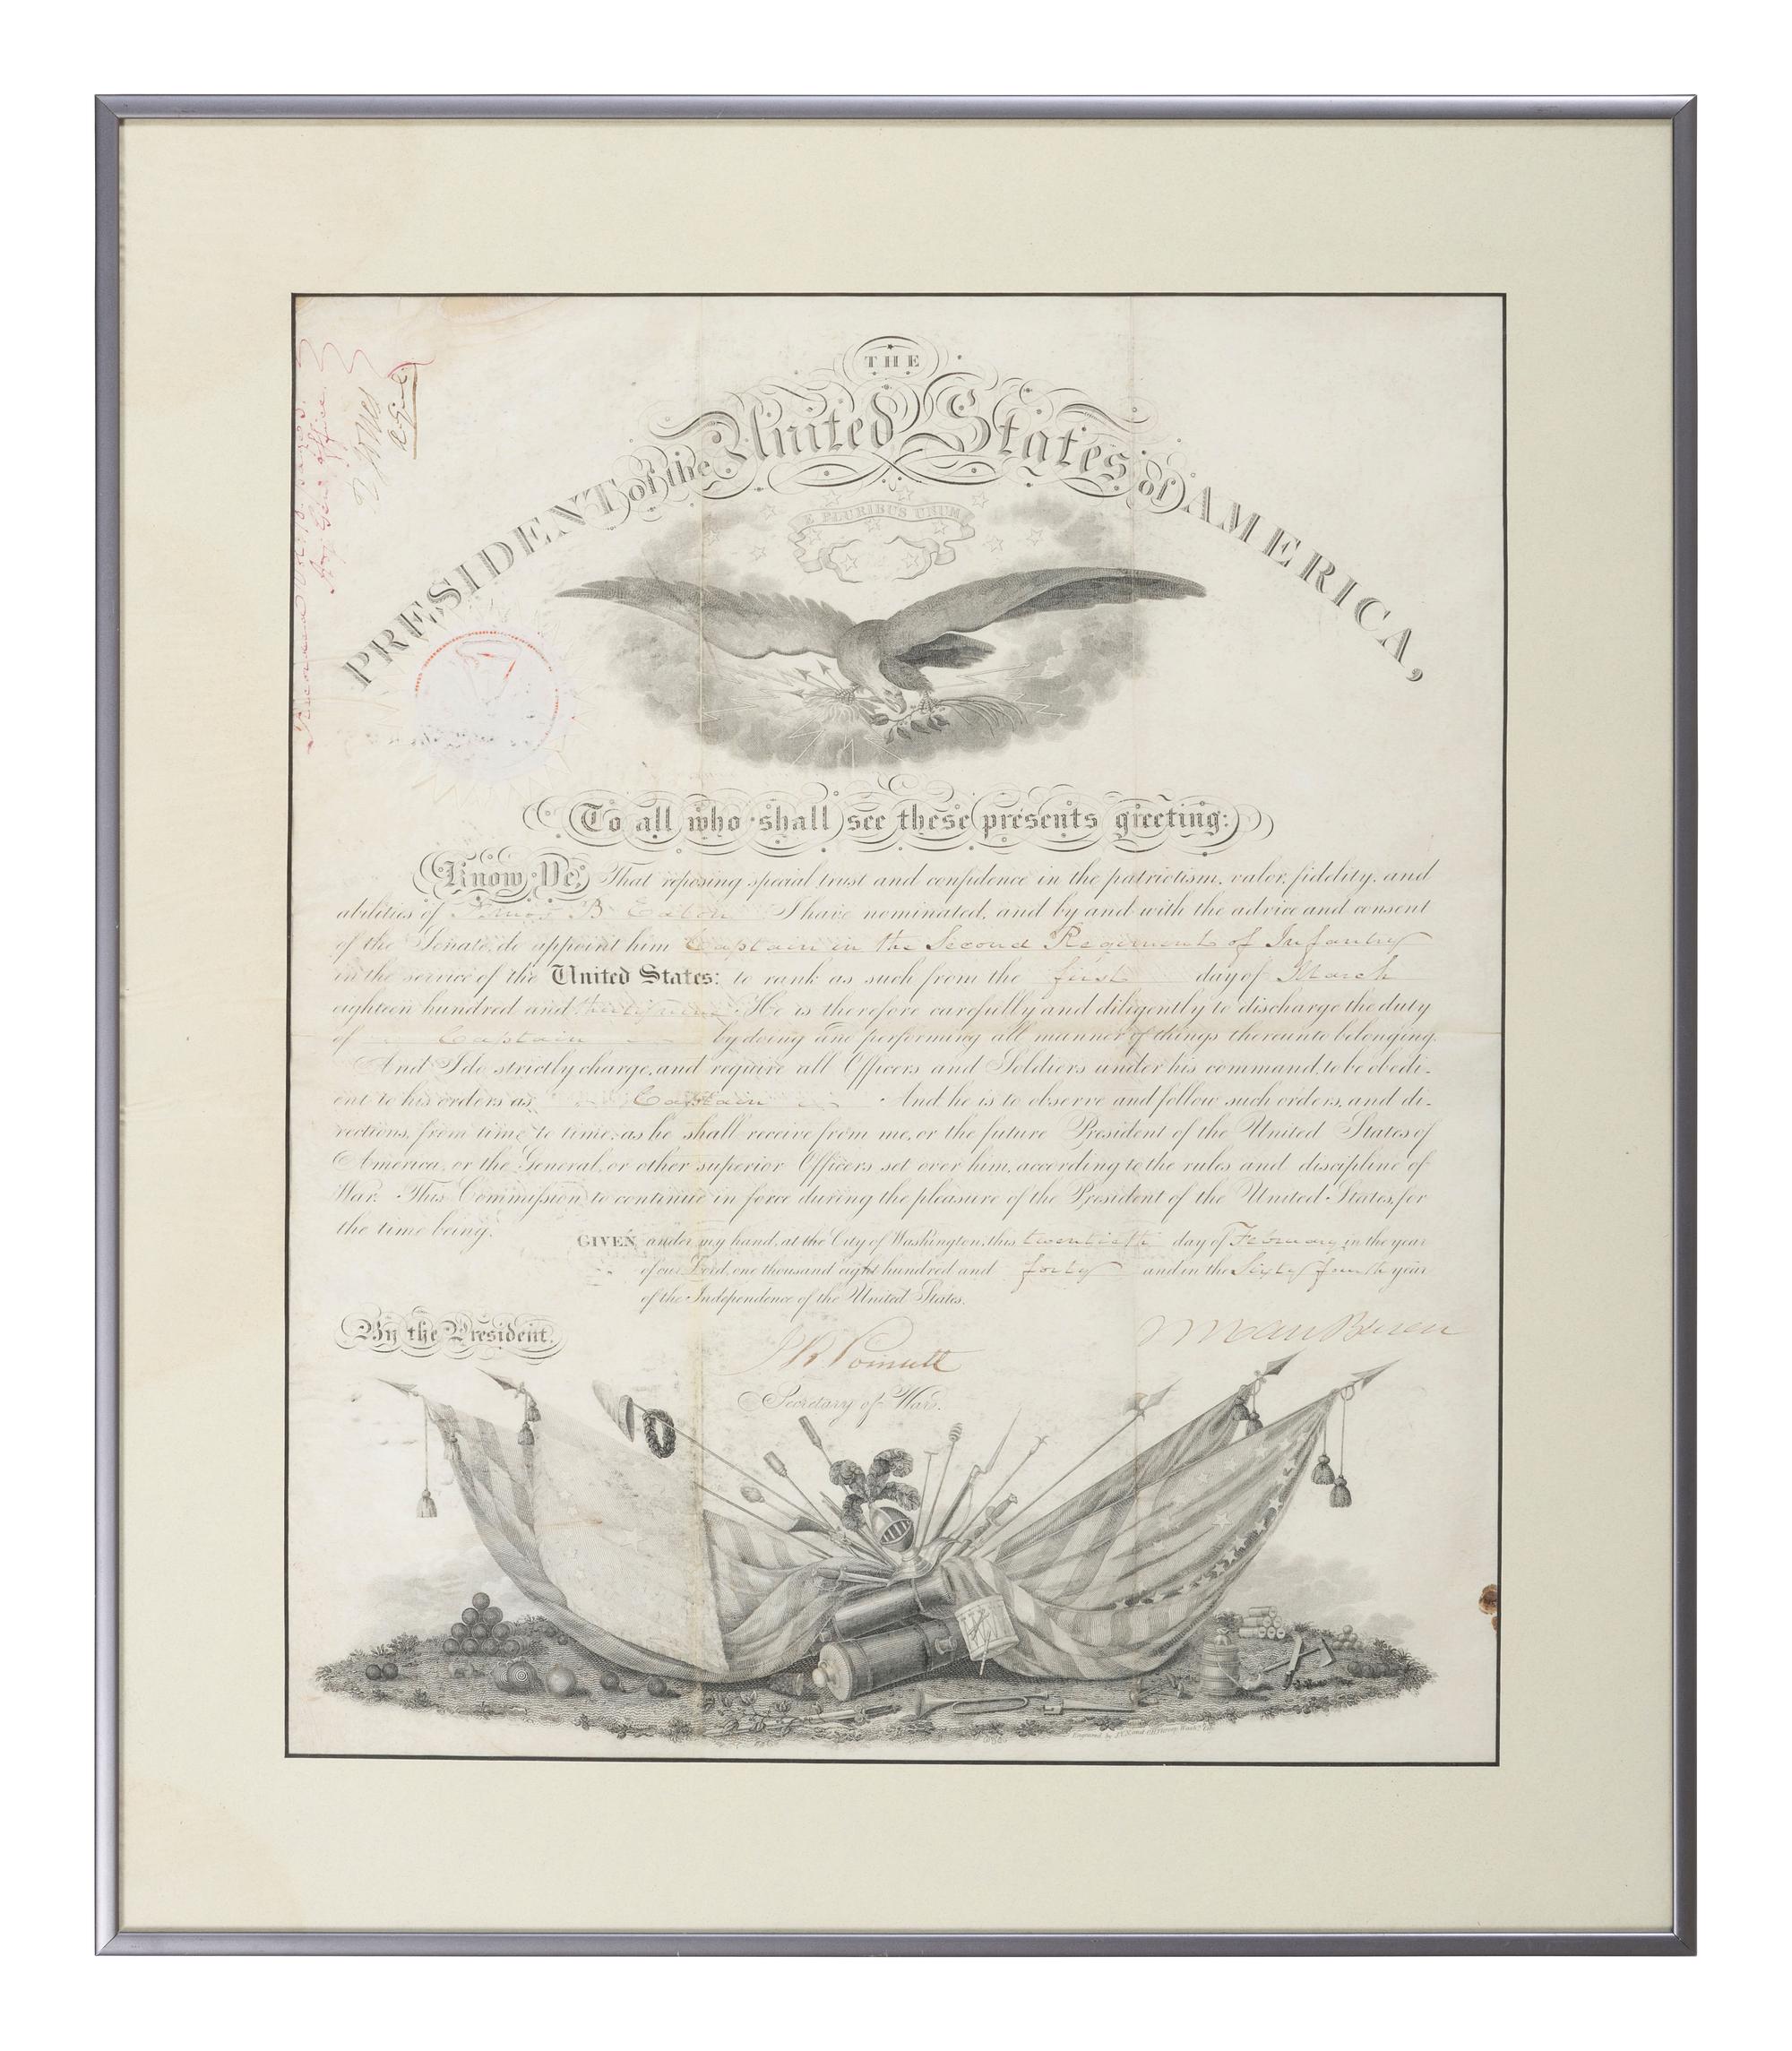 THE
PRESIDENT of the United States of AMERICA,
E PLURIBUS UNUM
To all who shall see these presents greeting:
Know Ye, That reposing special trust and confidence in the patriotism, valor, fidelity, and
abilities of Amos B Eaton I have nominated, and by and with the advice and consent
of the Senate, do appoint him Captain in the Second Regiment of Infantry
in the service of the United States: to rank as such from the first day of March
eighteen hundred and He is therefore carefully and diligently to discharge the duty
of Captain by doing and performing all manner of things thereunto belonging.
And I do strictly charge, and require all Officers and Soldiers under his command, to be obedi-
ent to his orders as Captain And he is to observe and follow such orders, and di-
rections, from time to time, as he shall receive from me, or the future President of the United States of
America, or the General, or other superior Officers set over him, according to the rules and discipline of
War. This Commission to continue in force during the pleasure of the President of the United States, for
the time being.
GIVEN under my hand, at the City of Washington, this twentieth day of February in the year
of our Lord, one thousand eight hundred and forty and in the Sixty fourth year
of the Independence of the United States.
By the President.
M Van Buren
J R Poinsett
Secretary of War.